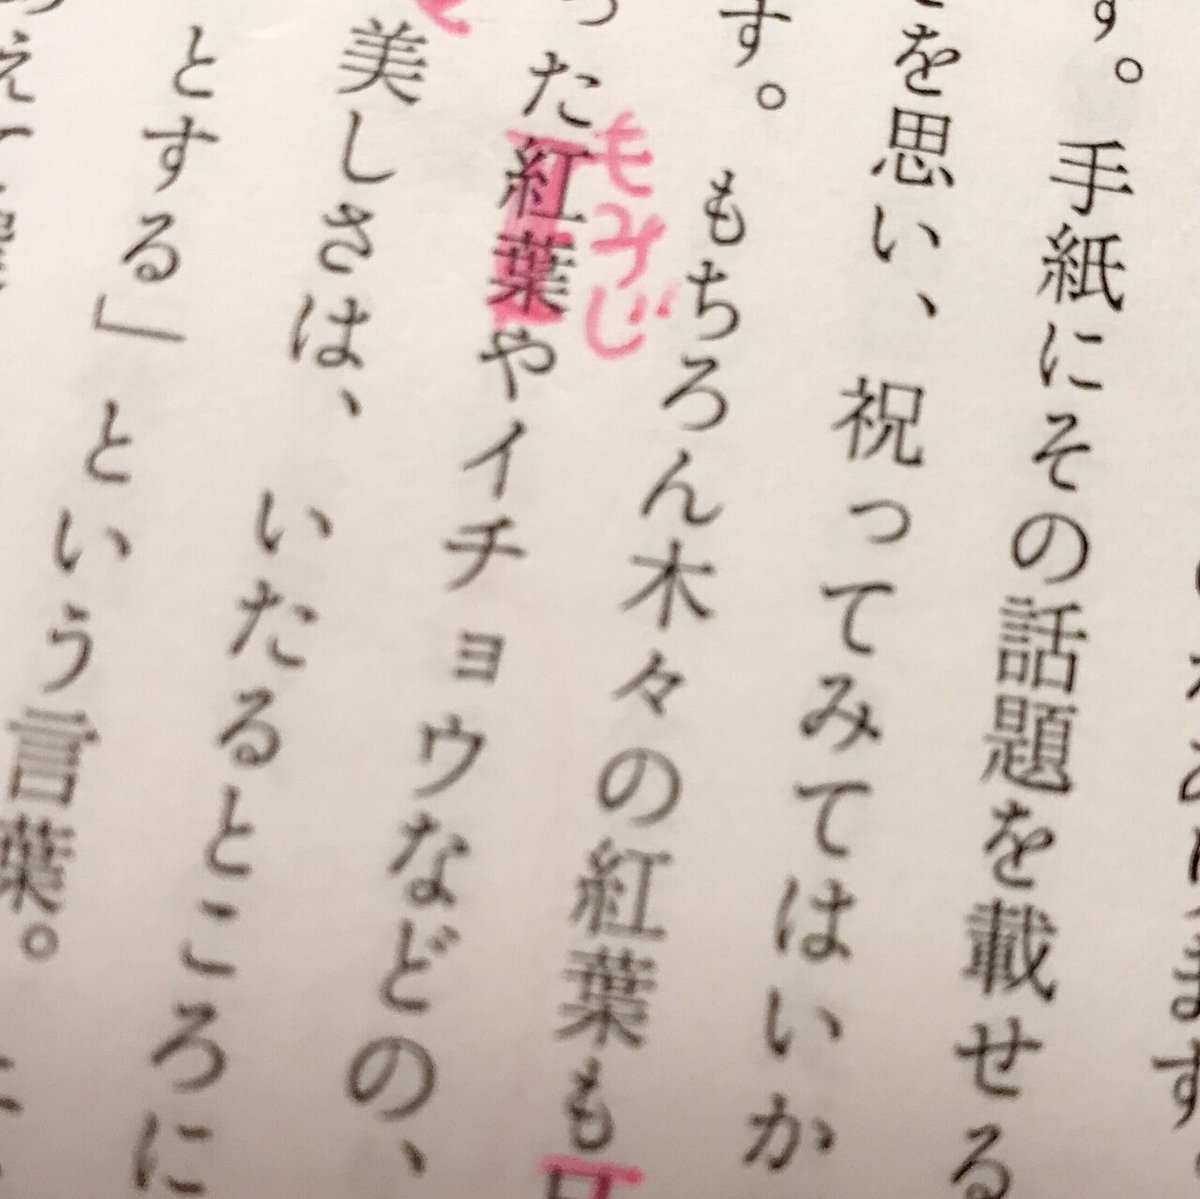 す。手紙にその話題を載せる
を思い、祝ってみてはいか
す。 もちろん木々の紅葉も
った紅葉やイチョウなどの、
もみじ
美しさは、いたるところに
とする」という言葉。